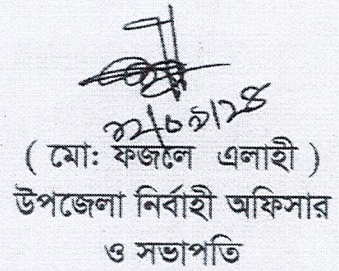 ( মো: ফজলে এলাহী )
উপজেলা নির্বাহী অফিসার
ও সভাপতি